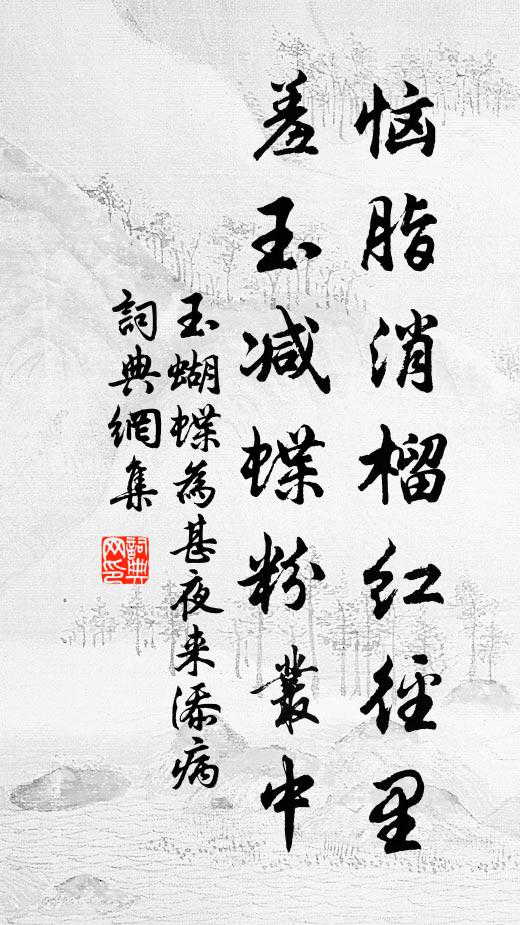 恼脂消榴红径里
羞玉减蝶粉叢中
玉蝴蝶為甚夜来添病
詞典網集
詞典网印